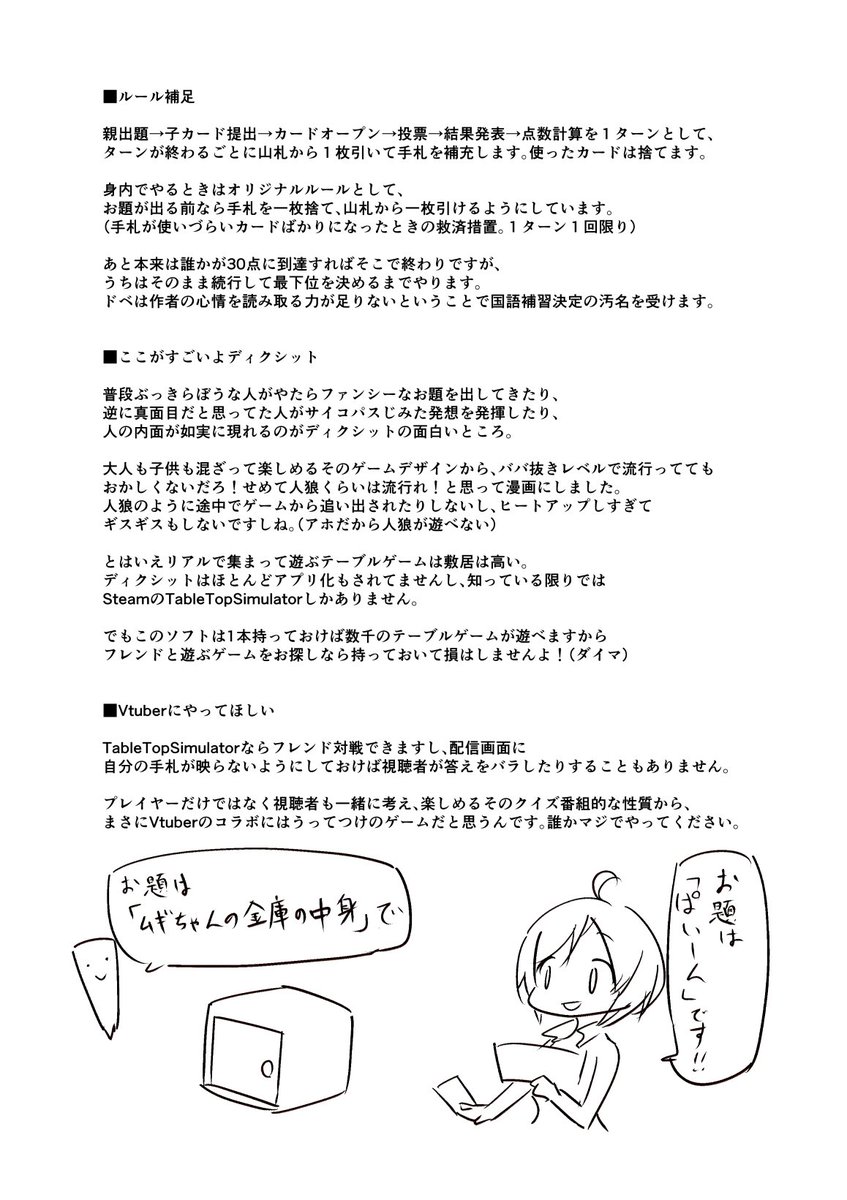 ■ルール補足
親出題→子カード提出→カードオープン→投票→結果発表→点数計算を１ターンとして、
ターンが終わるごとに山札から１枚引いて手札を補充します。使ったカードは捨てます。
身内でやるときはオリジナルルールとして、
お題が出る前なら手札を一枚捨て、山札から一枚引けるようにしています。
（手札が使いづらいカードばかりになったときの救済措置。１ターン１回限り）
あと本来は誰かが30点に到達すればそこで終わりですが、
うちはそのまま続行して最下位を決めるまでやります。
ドベは作者の心情を読み取る力が足りないということで国語補習決定の汚名を受けます。
■ここがすごいよディクシット
普段ぶっきらぼうな人がやたらファンシーなお題を出してきたり、
逆に真面目だと思ってた人がサイコパスじみた発想を発揮したり、
人の内面が如実に現れるのがディクシットの面白いところ。
大人も子供も混ざって楽しめるそのゲームデザインから、ババ抜きレベルで流行ってても
おかしくないだろ！せめて人狼くらいは流行れ！と思って漫画にしました。
人狼のように途中でゲームから追い出されたりしないし、ヒートアップしすぎて
ギスギスもしないですしね。（アホだから人狼が遊べない）
とはいえリアルで集まって遊ぶテーブルゲームは敷居は高い。
ディクシットはほとんどアプリ化もされてませんし、知っている限りでは
SteamのTableTopSimulatorしかありません。
でもこのソフトは1本持っておけば数千のテーブルゲームが遊べますから
フレンドと遊ぶゲームをお探しなら持っておいて損はしませんよ！（ダイマ）
■Vtuberにやってほしい
TableTopSimulatorならフレンド対戦できますし、配信画面に
自分の手札が映らないようにしておけば視聴者が答えをバラしたりすることもありません。
プレイヤーだけではなく視聴者も一緒に考え、楽しめるそのクイズ番組的な性質から、
まさにVtuberのコラボにはうってつけのゲームだと思うんです。誰かマジでやってください。
お題は
「ぱいーん」です!!
お題は
「ムギちゃんの金庫の中身」で